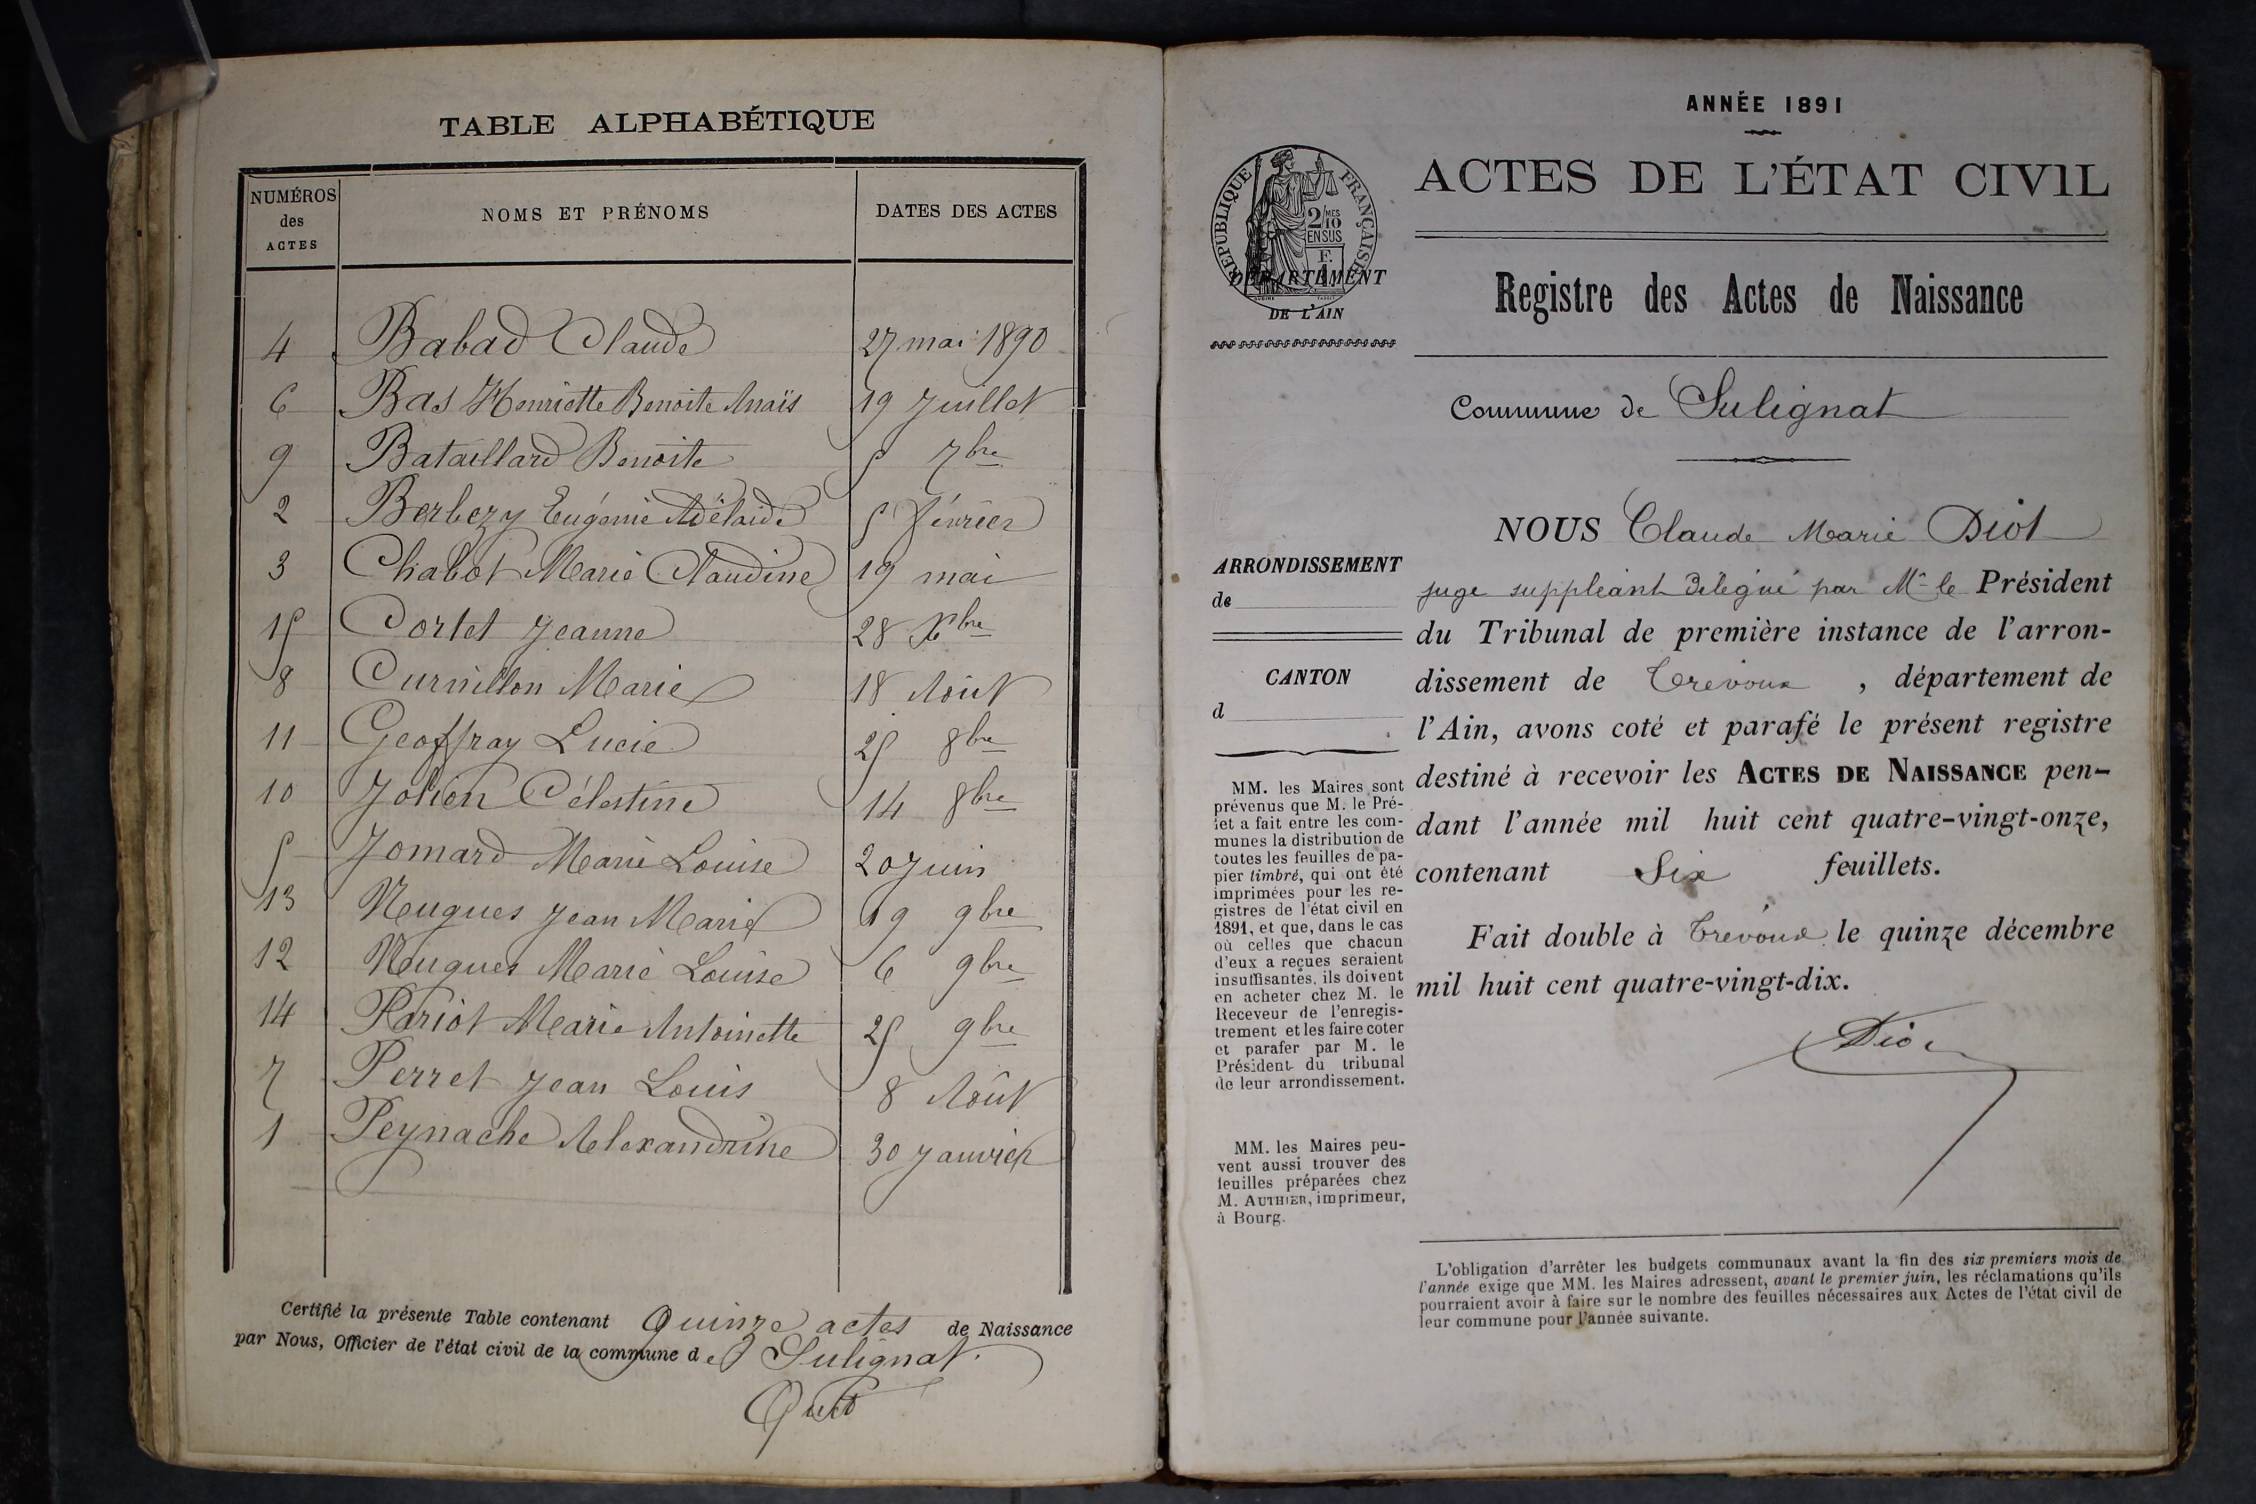 TABLE ALPHABÉTIQUE
NUMÉROS des ACTES NOMS ET PRÉNOMS DATES DES ACTES
4 Babad Claude 27 mai 1890
6 Bas Henriette Benoite Anaïs 19 Juillet
9 Bataillard Benoite 5 7bre
2 Berbezy Eugénie Adélaide 5 février
3 Chabot Marie Claudine 19 mai
15 Cortet Jeanne 28 Xbre
8 Curnillon Marie 18 Août
11 Geoffray Lucie 25 8bre
10 Jolion Célestine 14 8bre
5 Jomard Marie Louise 20 Juin
13 Nugues Jean Marie 19 9bre
12 Nugues Marie Louise 6 9bre
14 Pariot Marie Antoinette 25 9bre
7 Perret Jean Louis 8 Août
1 Peynache Alexandrine 30 Janvier
Certifié la présente Table contenant Quinze actes de Naissance
par Nous, Officier de l'état civil de la commune de Sulignat.
ANNÉE 1891
ACTES DE L'ÉTAT CIVIL
RÉPUBLIQUE FRANÇAISE
2/10 MES
EN SUS
DÉPARTEMENT
DE L'AIN
Registre des Actes de Naissance
Commune de Sulignat
ARRONDISSEMENT
de
CANTON
d
MM. les Maires sont
prévenus que M. le Pré-
fet a fait entre les com-
munes la distribution de
toutes les feuilles de pa-
pier timbré, qui ont été
imprimées pour les re-
gistres de l'état civil en
1891, et que, dans le cas
où celles que chacun
d'eux a reçues seraient
insuffisantes, ils doivent
en acheter chez M. le
Receveur de l'enregis-
trement et les faire coter
et parafer par M. le
Président du tribunal
de leur arrondissement.
MM. les Maires peu-
vent aussi trouver des
feuilles préparées chez
M. AUTHIER, imprimeur,
à Bourg.
NOUS Claude Marie Diot
juge suppléant délégué par Mr le Président
du Tribunal de première instance de l'arron-
dissement de Trévoux , département de
l'Ain, avons coté et parafé le présent registre
destiné à recevoir les ACTES DE NAISSANCE pen-
dant l'année mil huit cent quatre-vingt-onze,
contenant Six feuillets.
Fait double à Trévoux le quinze décembre
mil huit cent quatre-vingt-dix.
Diot
L'obligation d'arrêter les budgets communaux avant la fin des six premiers mois de
l'année exige que MM. les Maires adressent, avant le premier juin, les réclamations qu'ils
pourraient avoir à faire sur le nombre des feuilles nécessaires aux Actes de l'état civil de
leur commune pour l'année suivante.